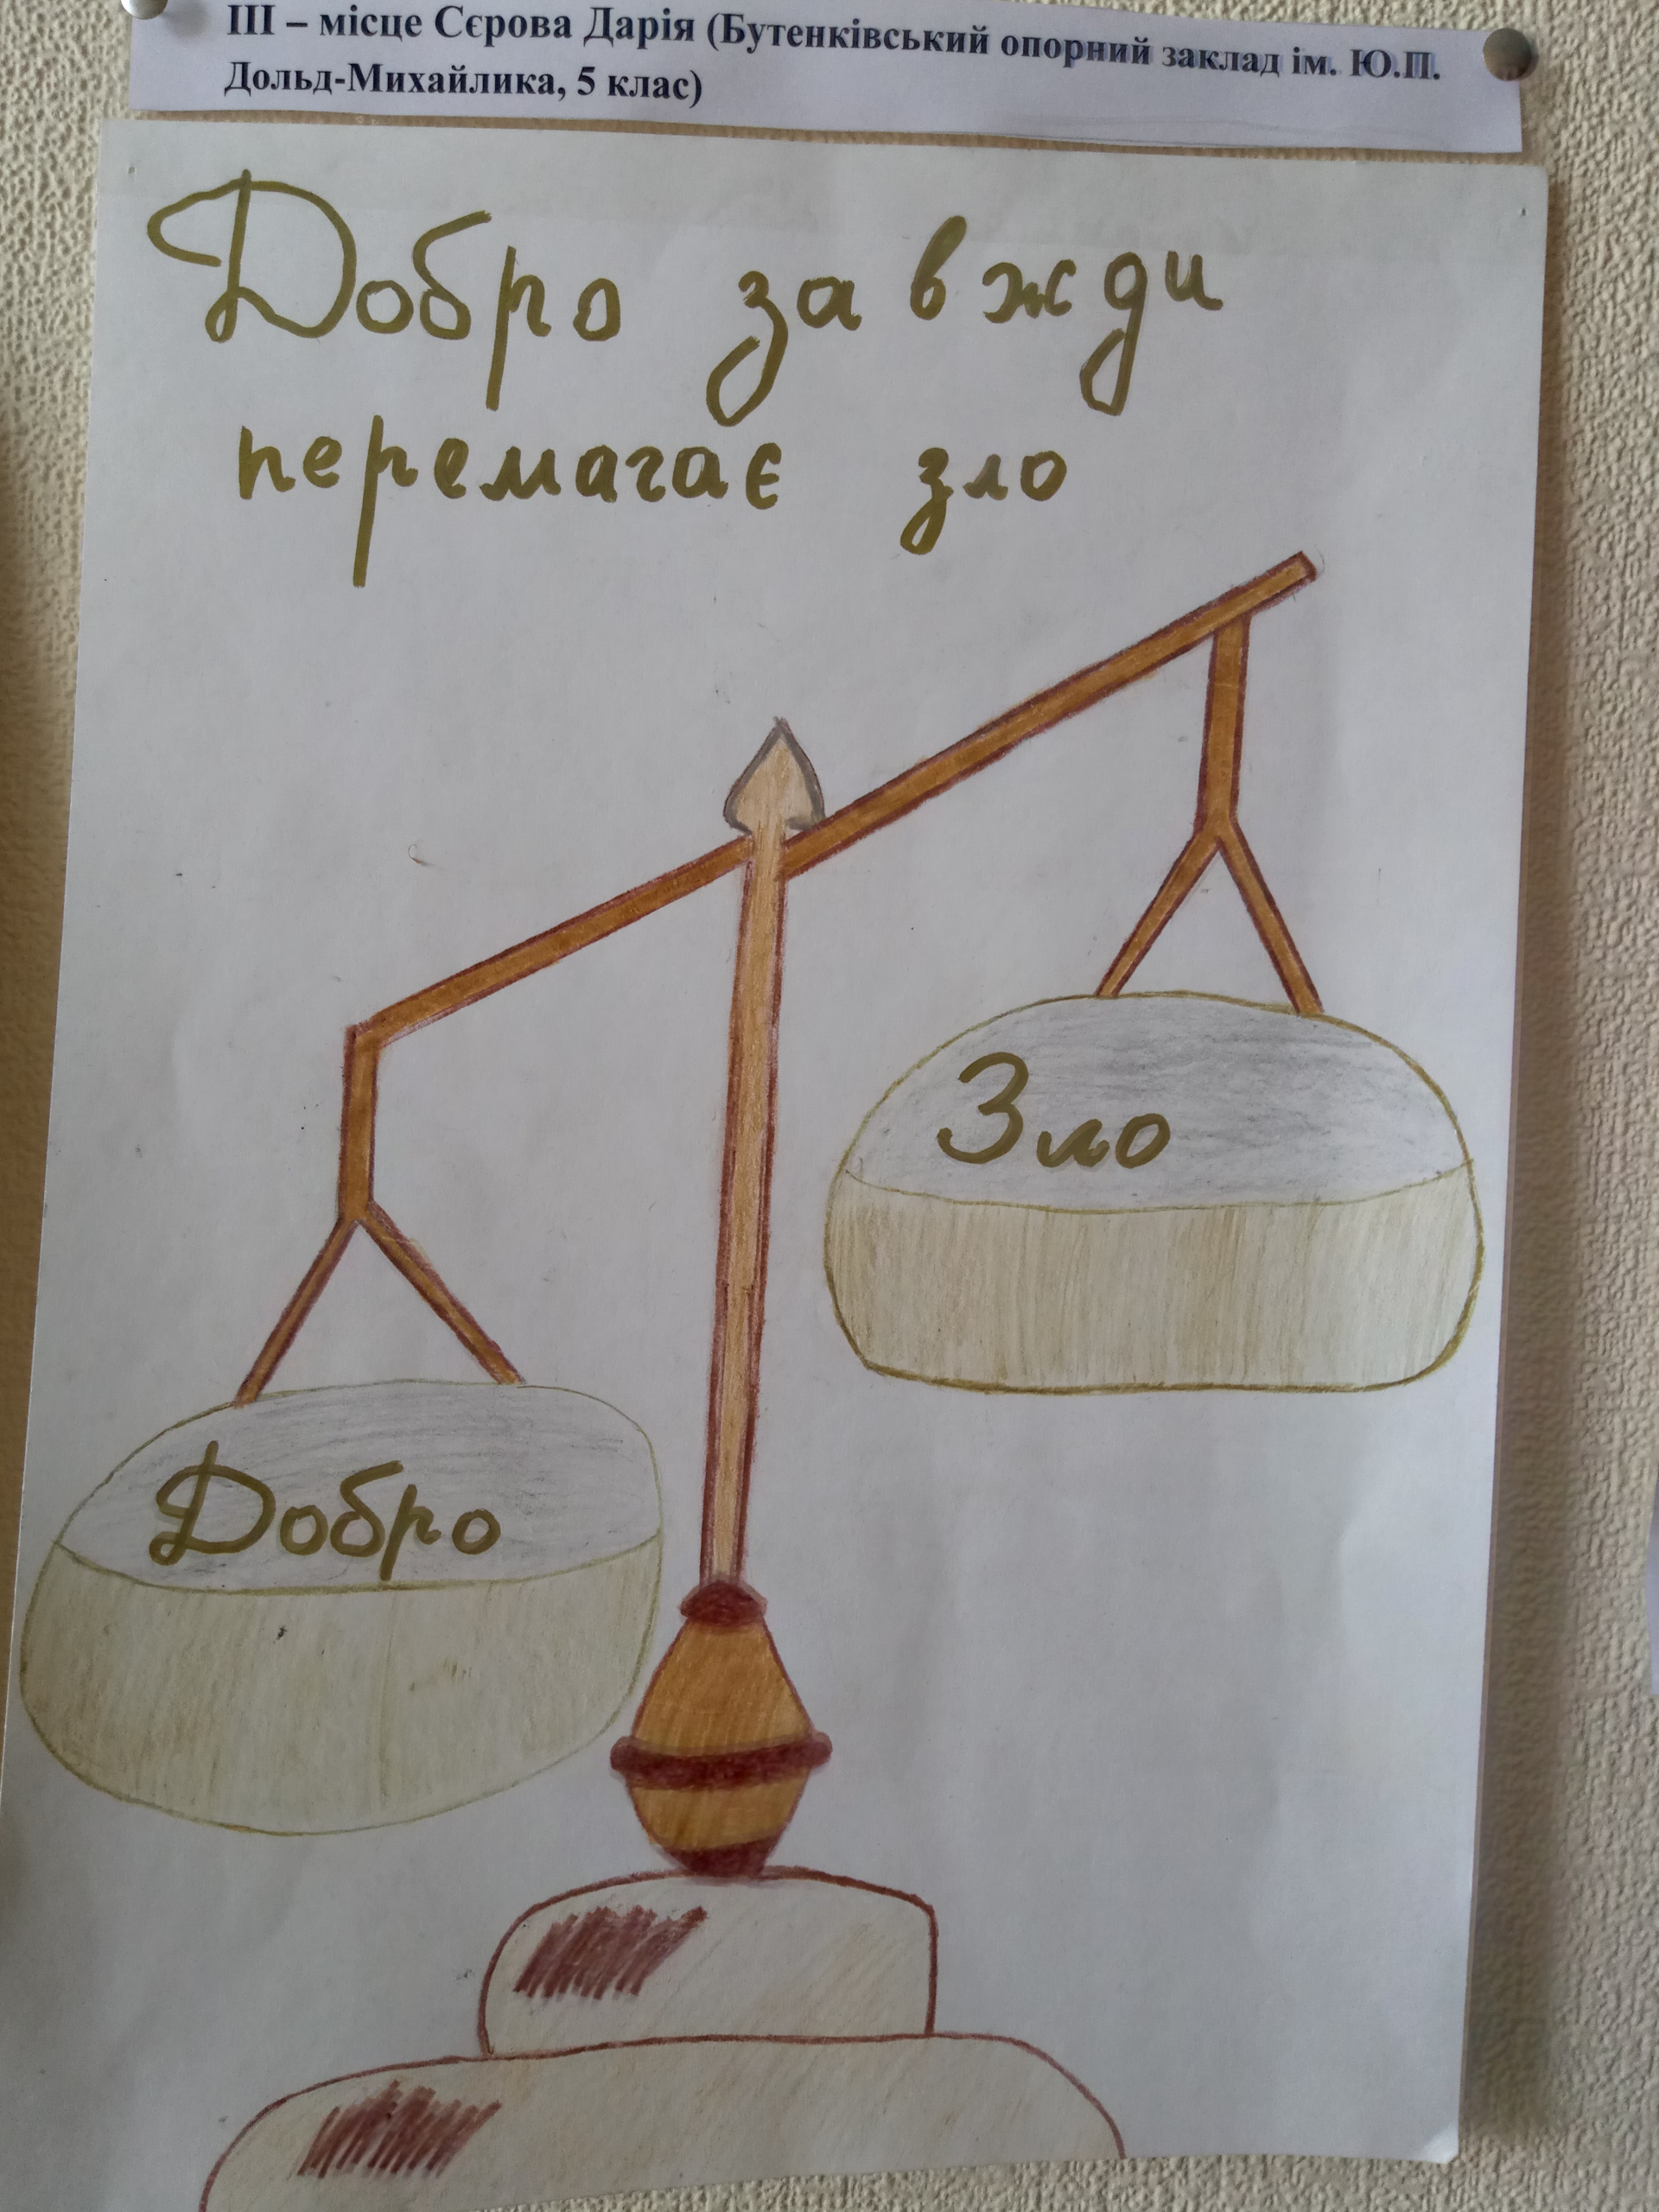 ІІІ – місце Сєрова Дарія (Бутенківський опорний заклад ім. Ю.П.
Дольд-Михайлика, 5 клас)
Добро завжди
перемагає зло
Зло
Добро